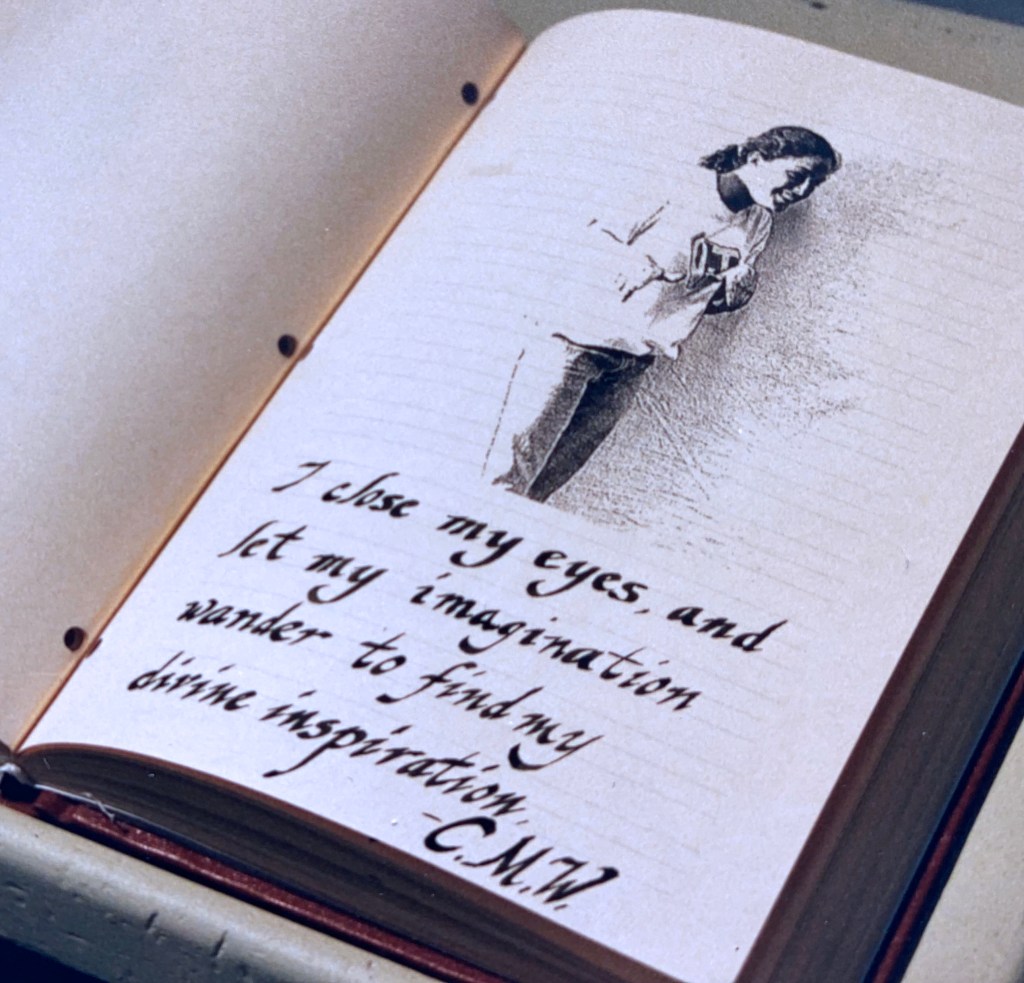 I close my eyes, and
let my imagination
wander to find my
divine inspiration.
-C.M.W.